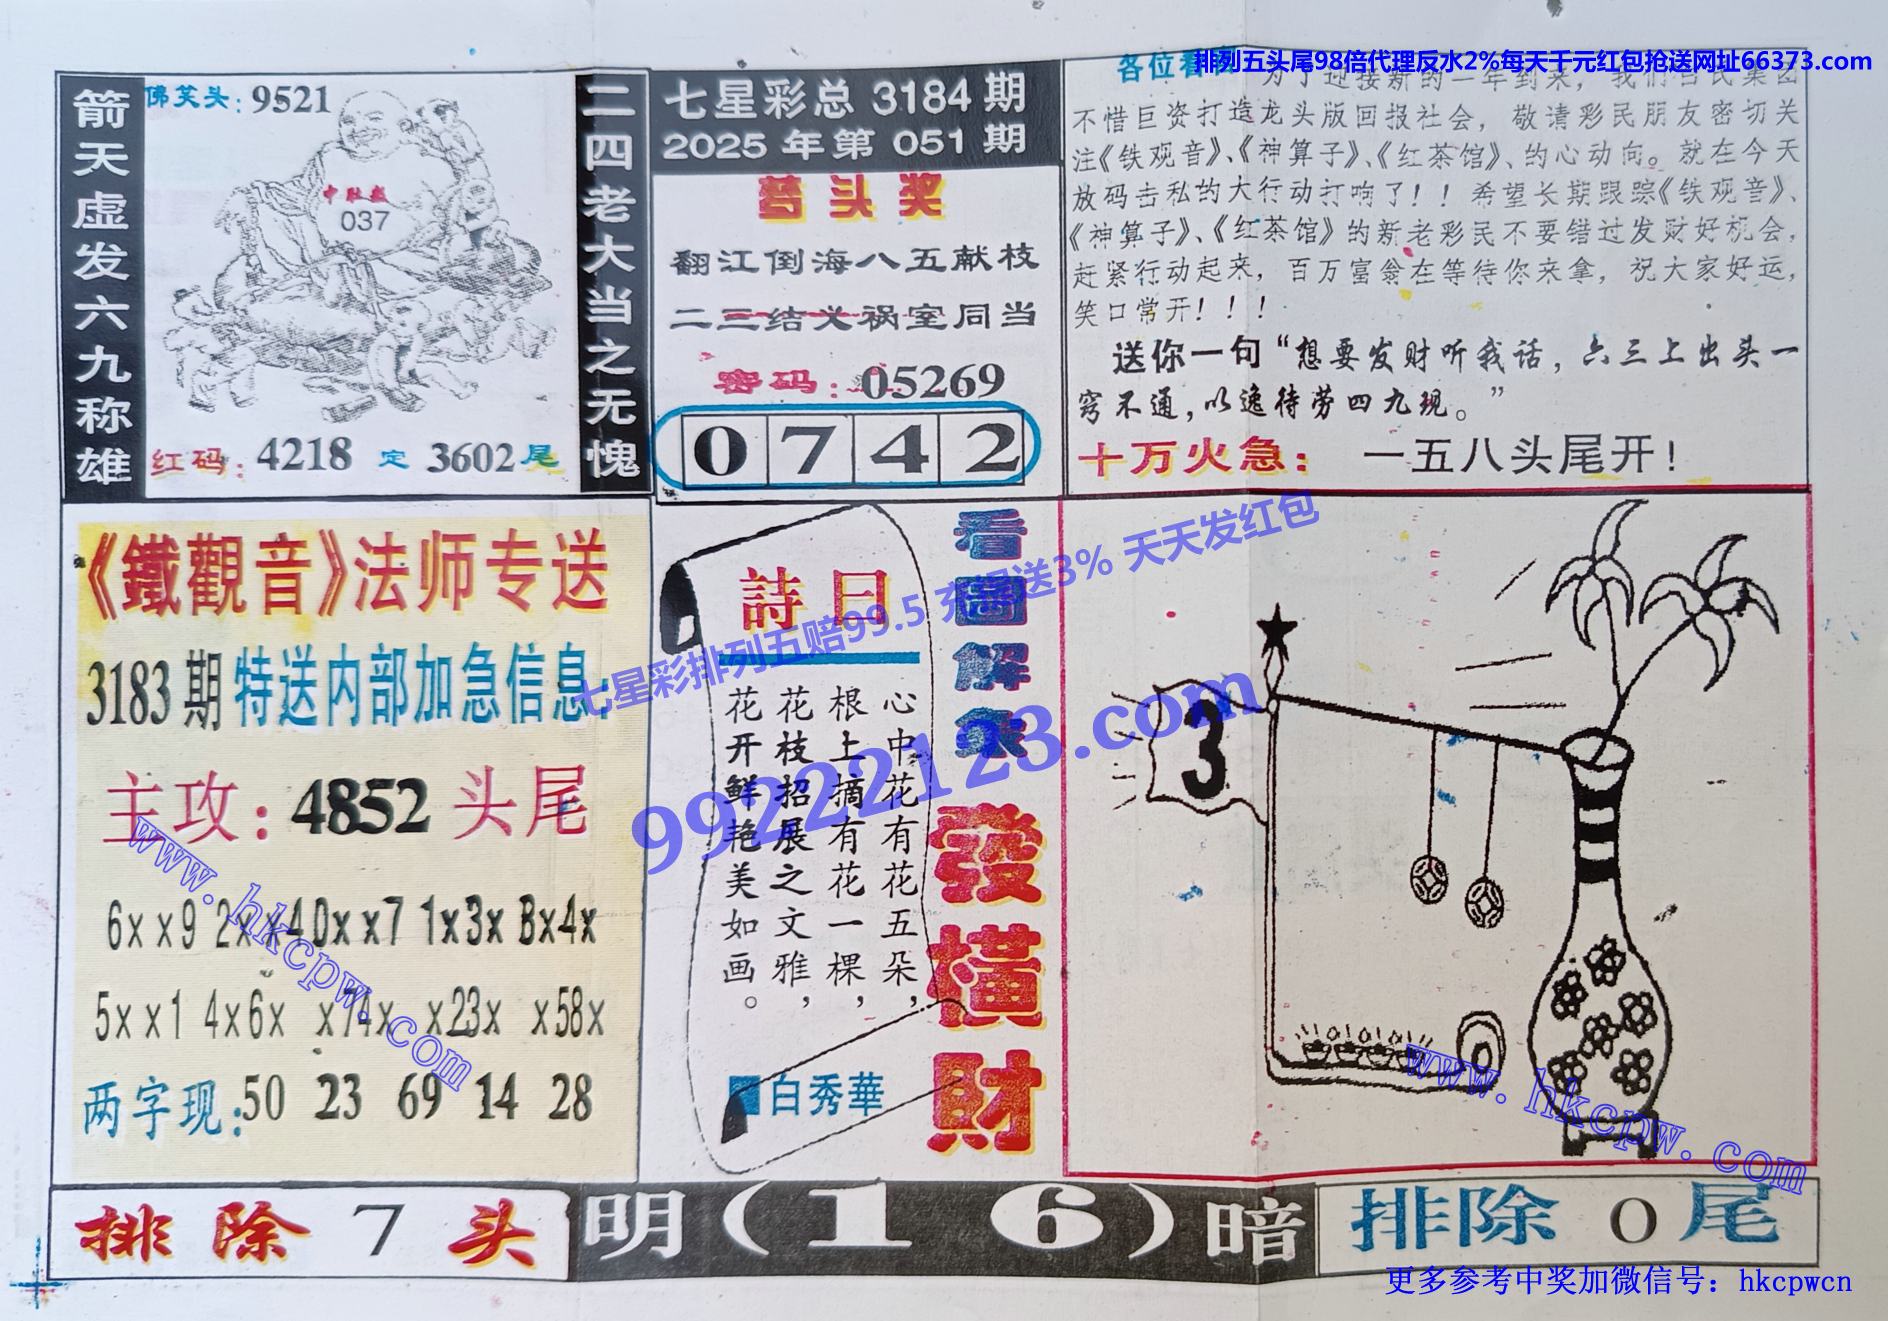 排列五头尾98倍代理反水2%每天千元红包抢送网址66373.com
箭天虚发六九称雄
佛笑头：9521
中肚数
037
红码：4218 定 3602尾
二四老大当之无愧
七星彩总 3184 期
2025 年第 051 期
头奖
翻江倒海八五献枝
二三结义祸室同当
密码：05269
0 7 4 2
各位看
为了迎接新的一年到来，我们
不惜巨资打造龙头版回报社会，敬请彩民朋友密切关
注《铁观音》、《神算子》、《红茶馆》、的心动向。就在今天
放码击私的大行动打响了！！希望长期跟踪《铁观音》、
《神算子》、《红茶馆》的新老彩民不要错过发财好机会，
赶紧行动起来，百万富翁在等待你来拿，祝大家好运，
笑口常开！！！
送你一句“想要发财听我话，六三上出头一
窍不通，以逸待劳四九现。”
十万火急：一五八头尾开！
《鐵觀音》法师专送
3183期特送内部加急信息：
主攻：4852 头尾
6xx9 2xx4 0xx7 1x3x 8x4x
5xx1 4x6x x74x x23x x58x
两字现：50 23 69 14 28
詩曰
心中花有花五朵，
根上摘有花一棵，
花枝招展之文雅，
花开鲜艳美如画。
白秀華
看圖解象
發橫財
3
七星彩排列五赔99.5 充值送3% 天天发红包
99222123.com
www.hkcpw.com
www.hkcpw.com
排除 7 头
明（16）暗
排除 0 尾
更多参考中奖加微信号：hkcpwcn